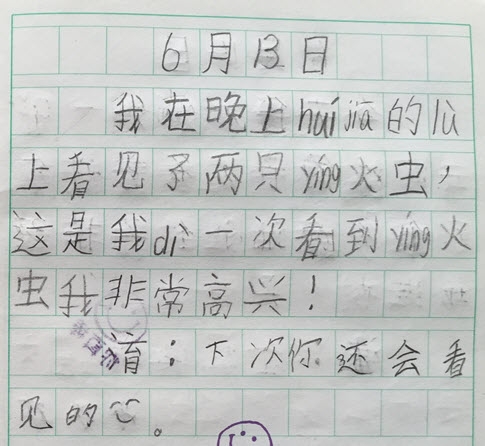 6月13日
我在晚上huí jiā的lù
上看见了两只yíng火虫，
这是我dì一次看到yíng火
虫我非常高兴！
育：下次你还会看
见的。